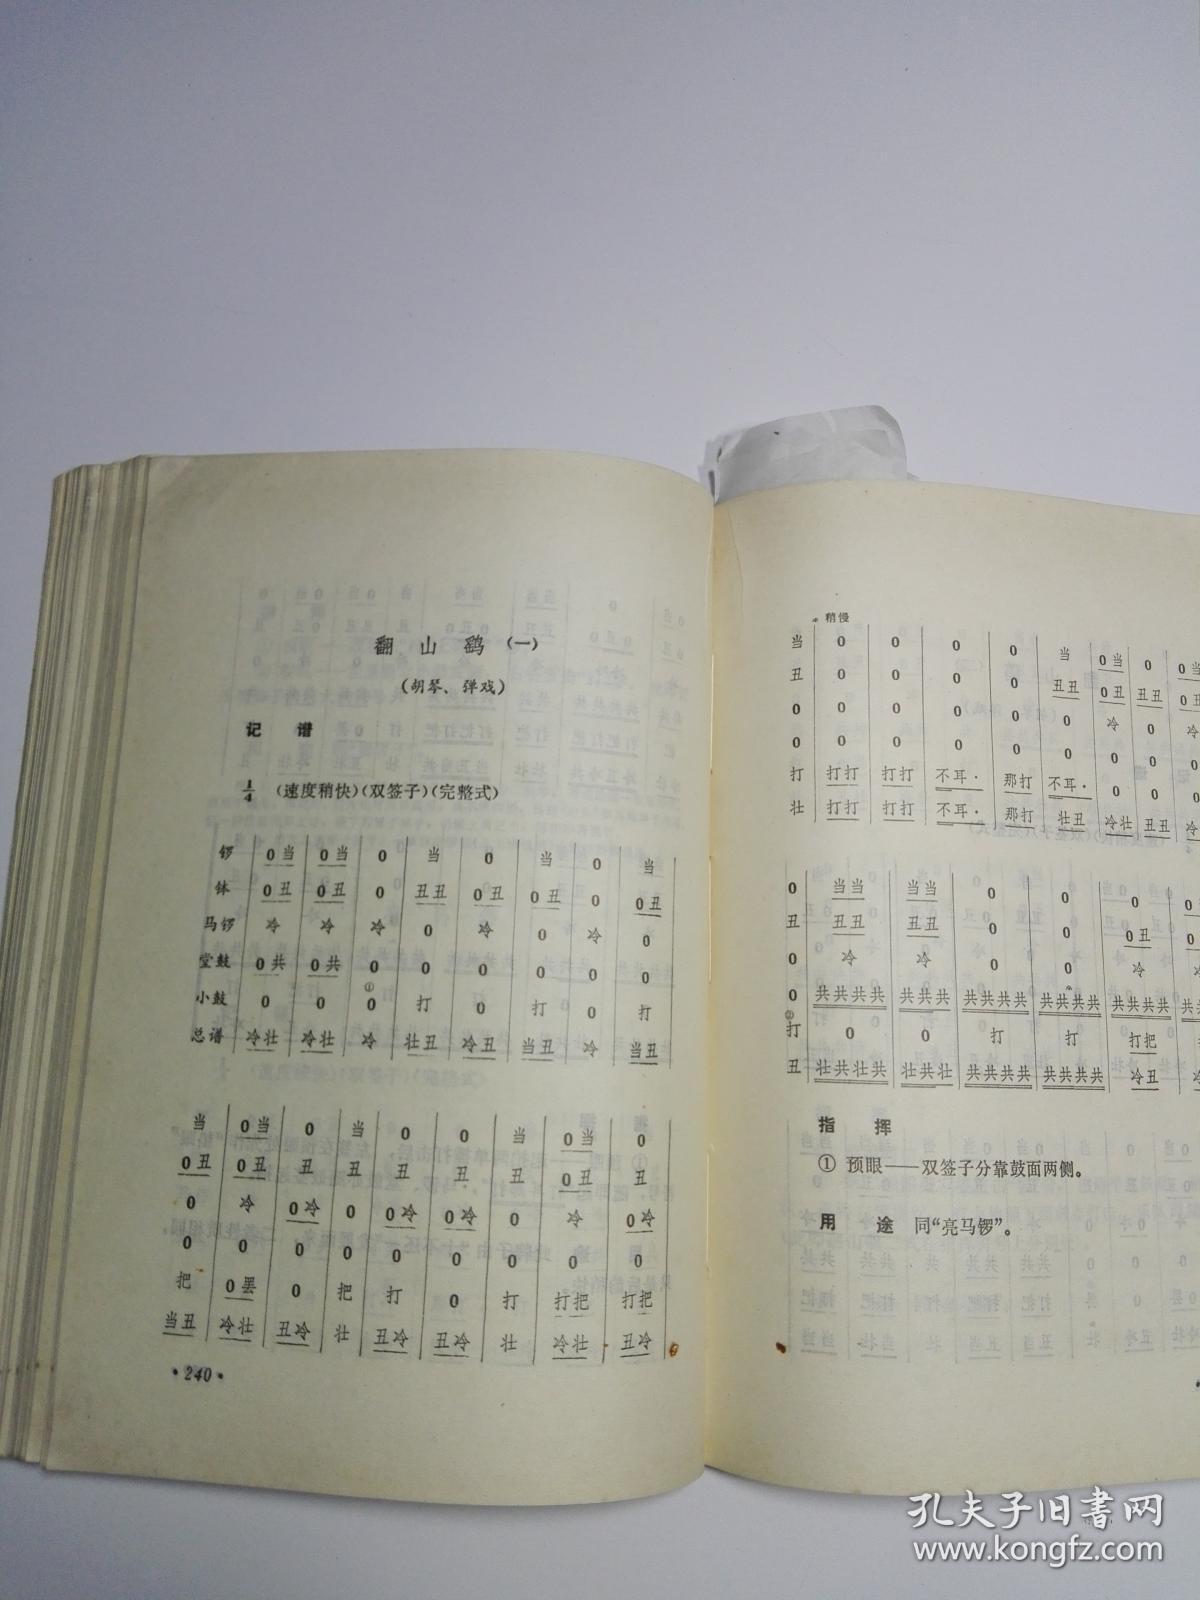 翻山鹞(一)
(胡琴、弹戏)
记 谱
1/4 (速度稍快)(双签子)(完整式)
锣 0当 0当 0 当 0 当 0 当
钵 0丑 0丑 0 丑丑 0丑 0丑 0 0丑
马锣 冷 冷 冷 0 冷 0 冷 0
堂鼓 0共 0共 0 0 0 0 0 0
小鼓 0 0 ①0 打 0 打 0 打
总谱 冷壮 冷壮 冷 壮丑 冷丑 当丑 冷 当丑
当 0当 0 当 0 0 当 0当 0
0丑 0丑 丑 丑 丑 丑 丑 0丑 丑
0 冷 0冷 0 0冷 0冷 0 冷 0冷
0 0 0 0 0 0 0 0 0
把 0罢 0 把 打 0 打 打把 打把
当丑 冷壮 丑冷 壮 丑冷 丑冷 壮 冷壮 丑冷
·240·
稍慢
当 0 0 0 0 当 0当 0 0当
丑 0 0 0 0 丑丑 0丑 丑丑 0丑
0 0 0 0 0 0 冷 0 冷
0 0 0 0 0 0 0 0 0
打 打打 打打 不耳· 那打 不耳· 0 0 0
壮 打打 打打 不耳· 那打 壮丑 冷壮 丑丑 冷壮
0 当当 当当 0 0 0 0
丑 丑丑 丑丑 0 0 0丑
0 冷 冷 0 0 冷
0 共共共共 共共共 共共共共 共共共共 共共共共
打 0 0 打 打 打把
丑 壮共壮共 壮共壮 共共共共 共共共共 冷丑
指 挥
① 预眼——双签子分靠鼓面两侧。
用 途 同“亮马锣”。
孔夫子旧书网
www.kongfz.com